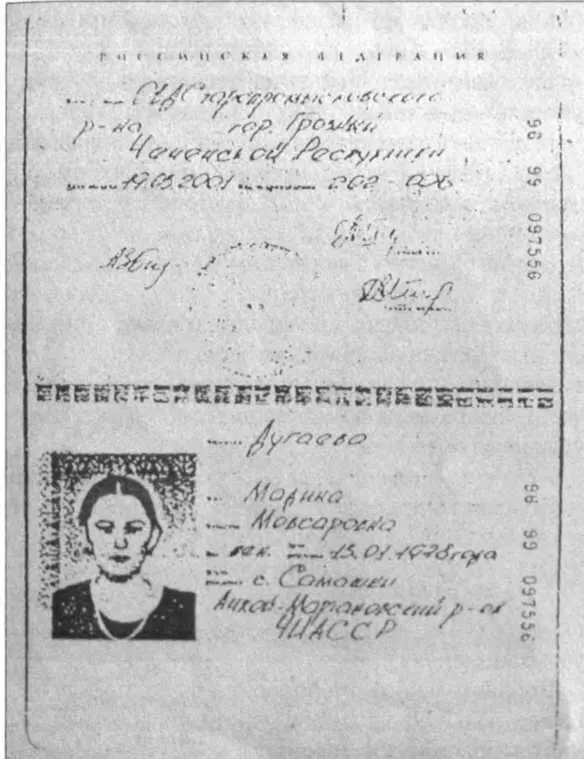 РОССИЙСКАЯ ФЕДЕРАЦИЯ
ОВД Старопромысловского
р-на гор. Грозный
Чеченской Республики
19.03.2001
96 99
Дугаева
Марина
Мовсаровна
жен. 15.01.1978 года
с. Самашки
Ачхой-Мартановский р-он
ЧИАССР
96 99